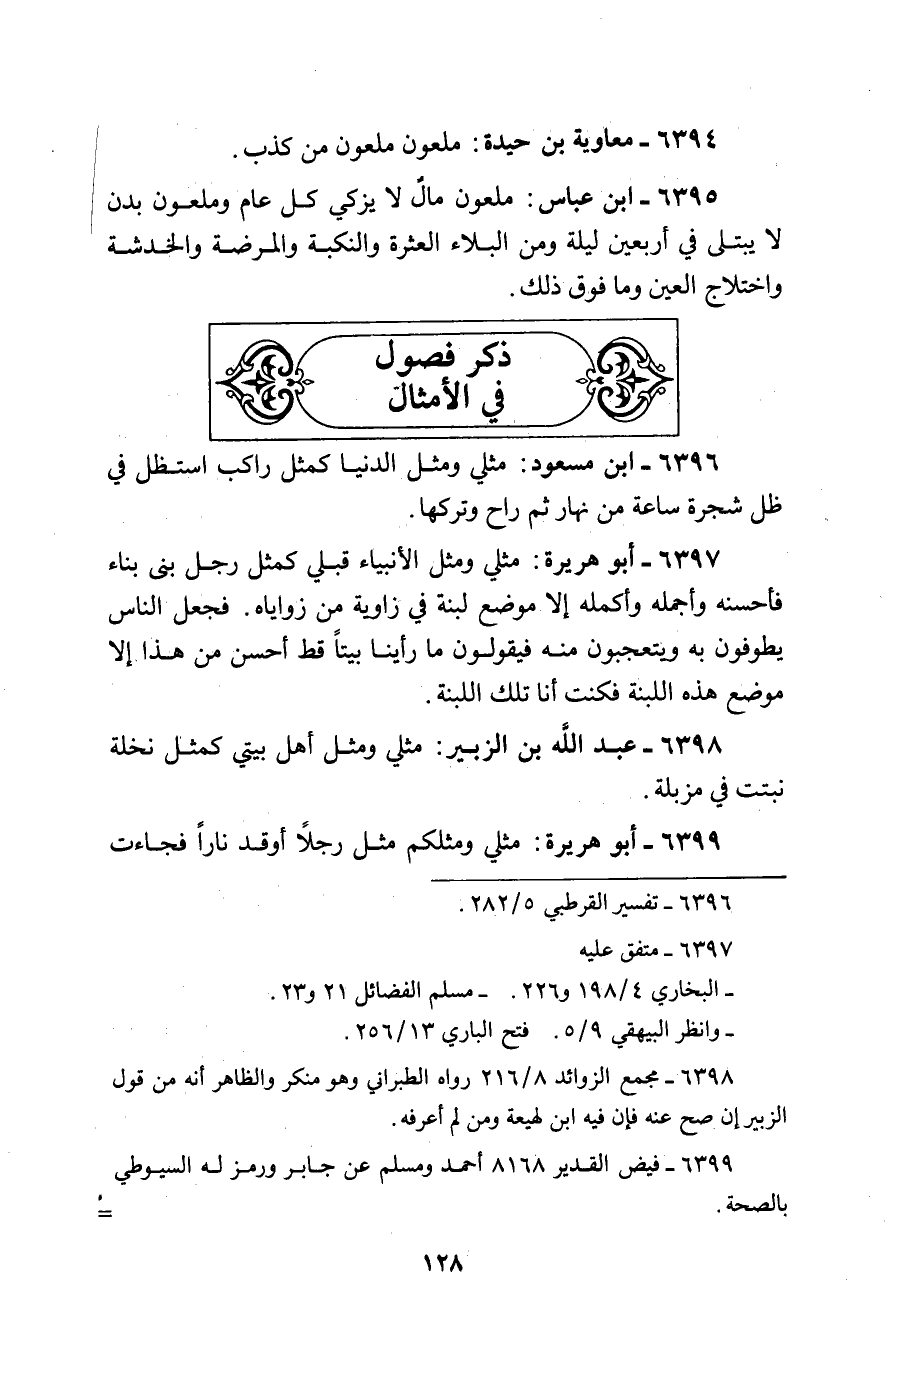 ٦٣٩٤ ـ معاوية بن حيدة: ملعون ملعون من كذب.
٦٣٩٥ ـ ابن عباس: ملعون مالٌ لا يزكي كل عام وملعون بدن
لا يبتلى في أربعين ليلة ومن البلاء العثرة والنكبة والمرضة والخدشة
واختلاج العين وما فوق ذلك.
ذكر فصول
في الأمثال
٦٣٩٦ ـ ابن مسعود: مثلي ومثل الدنيا كمثل راكب استظل في
ظل شجرة ساعة من نهار ثم راح وتركها.
٦٣٩٧ ـ أبو هريرة: مثلي ومثل الأنبياء قبلي كمثل رجل بنى بناء
فأحسنه وأجمله وأكمله إلا موضع لبنة في زاوية من زواياه. فجعل الناس
يطوفون به ويتعجبون منه فيقولون ما رأينا بيتاً قط أحسن من هذا إلا
موضع هذه اللبنة فكنت أنا تلك اللبنة.
٦٣٩٨ ـ عبد اللَّه بن الزبير: مثلي ومثل أهل بيتي كمثل نخلة
نبتت في مزبلة.
٦٣٩٩ ـ أبو هريرة: مثلي ومثلكم مثل رجلاً أوقد ناراً فجاءت
٦٣٩٦ ـ تفسير القرطبي ٢٨٢/٥.
٦٣٩٧ ـ متفق عليه
ـ البخاري ١٩٨/٤ و٢٢٦. ـ مسلم الفضائل ٢١ و٢٣.
ـ وانظر البيهقي ٥/٩. فتح الباري ٢٥٦/١٣.
٦٣٩٨ ـ مجمع الزوائد ٢١٦/٨ رواه الطبراني وهو منكر والظاهر أنه من قول
الزبير إن صح عنه فإن فيه ابن لهيعة ومن لم أعرفه.
٦٣٩٩ ـ فيض القدير ٨١٦٨ أحمد ومسلم عن جابر ورمز له السيوطي
بالصحة. =
١٢٨